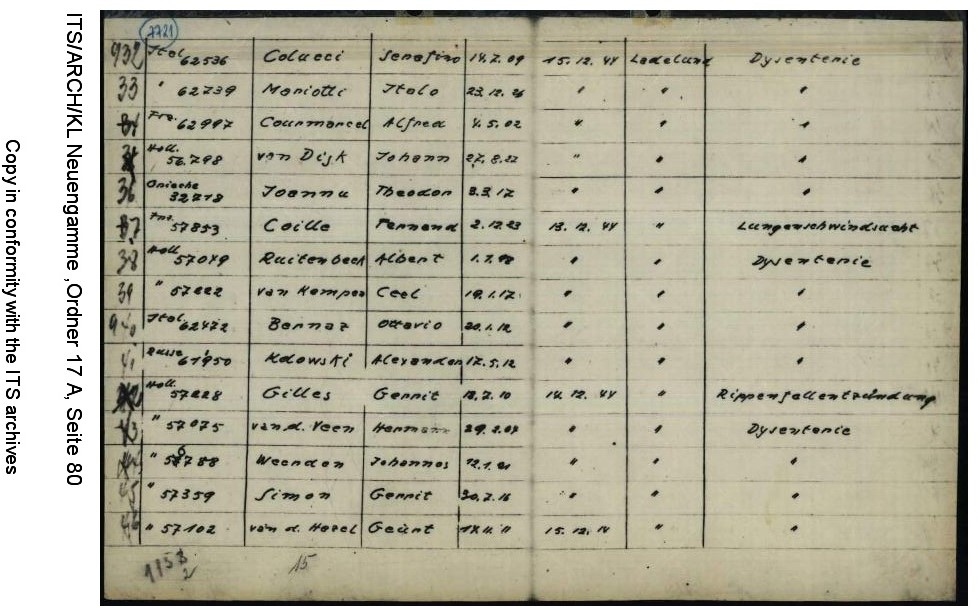 ITS/ARCH/KL Neuengamme ,Ordner 17 A, Seite 80
Copy in conformity with the ITS archives
7721
932 Ital. 62536 Colucci Serafino 14.2.09 15.12.44 Ladelund Dysenterie
33 " 62739 Mariotti Italo 23.12.26 " " "
Frz. 62997 Courmarcel Alfred 4.5.02 " " "
Holl. 56.798 van Dijk Johann 27.8.22 " " "
36 Grieche 32718 Joannu Theodor 3.3.17 " " "
37 Frz. 57853 Coille Fernand 2.12.23 13.12.44 " Lungenschwindsucht
38 Holl. 57049 Ruitenbeek Albert " " Dysenterie
39 " 57222 van Kampen Ceel 19.1.17 " " "
940 Ital. 62472 Bernaz Ottavio 20.1.12 " " "
41 Russe 61950 Kdowski Alexander 17.5.12 " " "
Holl. 57228 Gilles Gerrit 18.7.10 14.12.44 " Rippenfellentzündung
43 " 57075 van d. Veen Hermann " " Dysenterie
" Weerden Johannes " " "
45 " 57359 Simon Gerrit 20.7.16 " " "
46 " 57102 van d. Geürt 15.12.44 " "
1153
2
15